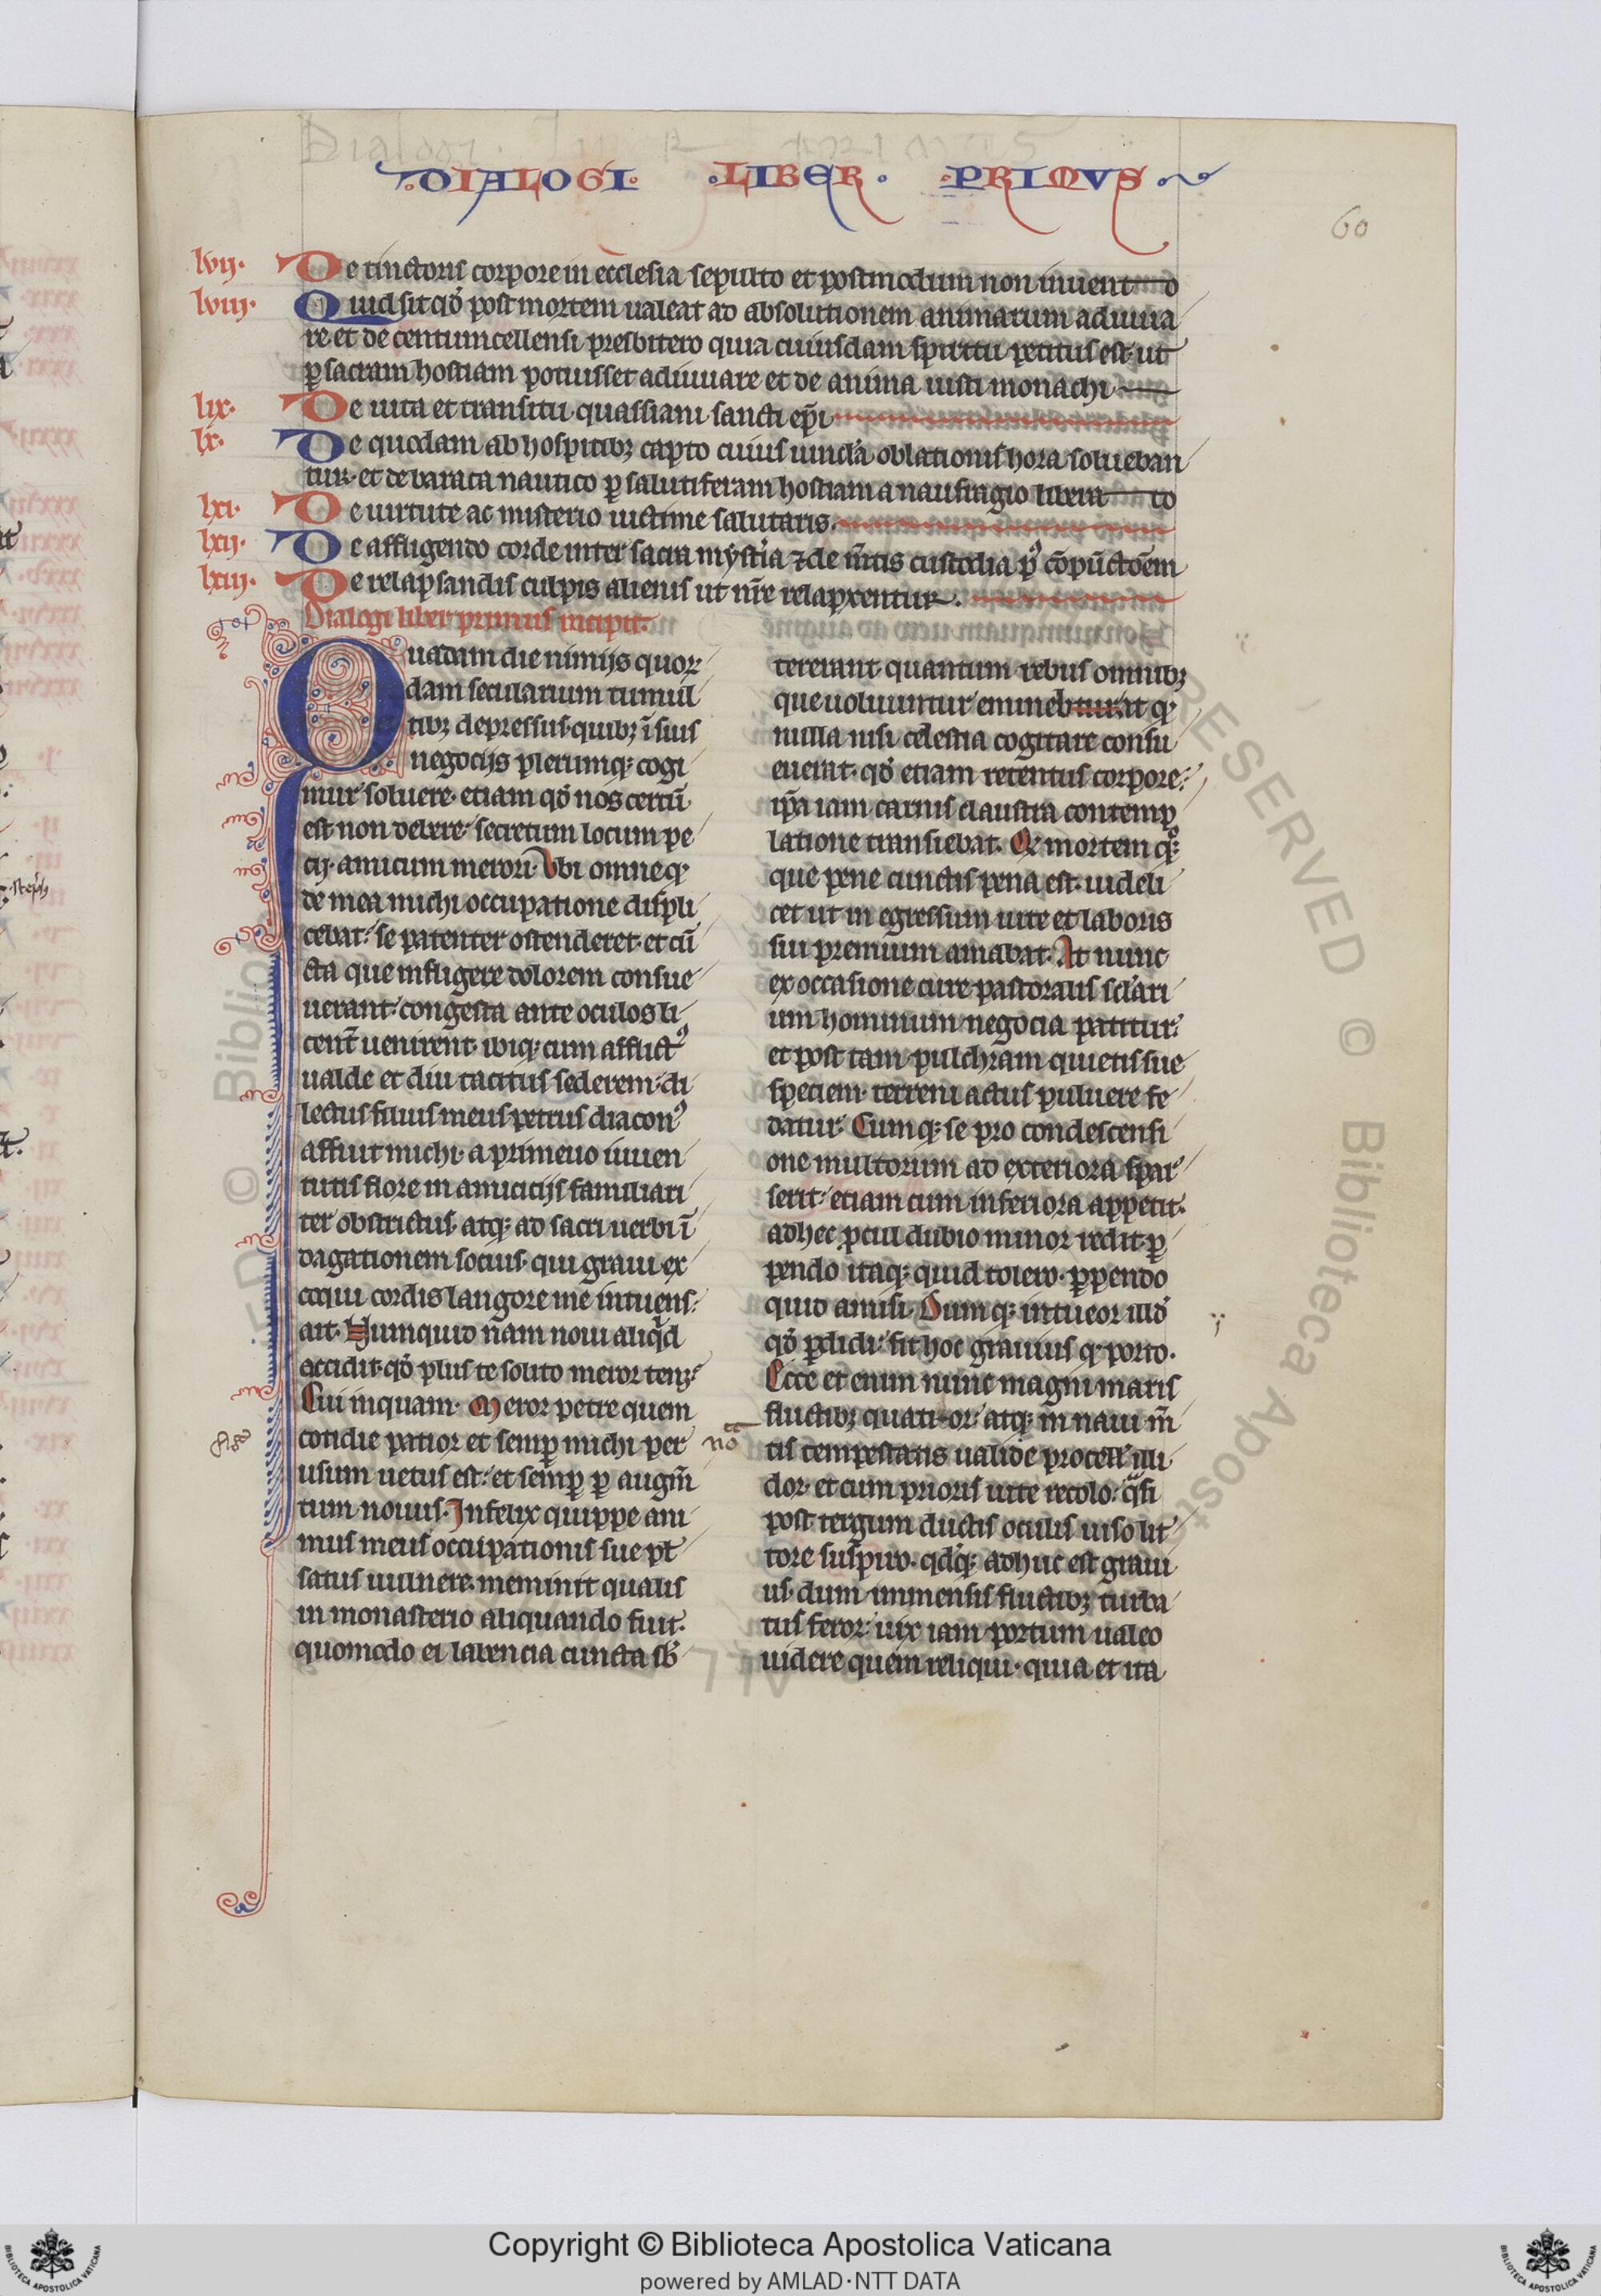 DIALOGI · LIBER · PRIMVS
60
lvij. De tinctoris corpore in ecclesia sepulto et postmodum non inuento
lviij. Quid sit qď post mortem ualeat ad absolutionem animarum adiuua
re et de centumcellensi presbitero quia cuiusdam spiritu petitus est ut
ꝑ sacram hostiam potuisset adiuuare et de anima iusti monachi
lix. De uita et transitu quassiani sancti ep̄i
lx. De quodam ab hostibꝫ capto cuius uincla oblationis hora solueban
tur. et de baraca nautico ꝑ salutiferam hostiam a naufragio libera to
lxi. De uirtute ac misterio uictime salutaris.
lxij. De affligendo corde inter sacra mysťia ⁊ de m̄tis custodia pꝰ cōpūctōem
lxiij. De relapsandis culpis alienis ut nr̄e relapxentur.
Dialogi liber primus incipit.
Quadam die nimijs quoꝝ
dam secularium tumul
tibꝫ depressus. quibꝫ ī suis
negocijs plerumqꝫ cogi
mur soluere. etiam qď nos certū
est non debere. secretum locum pe
cij. amicum merori. Vbi omne qď
de mea michi occupatione displi
cebat. se patenter ostenderet. et cū
cta que infligere dolorem consue
uerant. congesta ante oculos li
cent̄ uenirent. ibiqꝫ cum afflictꝰ
ualde et diu tacitus sederem. di
lectus filius meus petrus diaconꝰ
affuit michi. a primeuo iuuen
tutis flore in amicicijs familiari
ter obstrictus. atqꝫ ad sacri uerbi ī
dagationem socius. qui graui ex
coqui cordis langore me intuens.
ait. Numquid nam noui aliqͥd
accidit. qď plus te solito meror tenꝫ
Cui inquam. Meror petre quem
cotidie patior et semꝑ michi per
usum uetus est. et semꝑ ꝑ augm̄
tum nouus. Infelix quippe ani
mus meus occupationis sue pl̄
satus uulnere. meminit qualis
in monasterio aliquando fuit.
quomodo ei labencia cuncta sƀ
tererant. quantum rebus omnibꝫ
que uoluuntur eminebturat qď
nulla nisi celestia cogitare consu
euerat. qď etiam retentus corpore.
ip̄a iam carnis claustra contemp
latione transiebat. Qď mortem qꝫ
que pene cunctis pena est. uideli
cet ut in egressum uite et laboris
sui premium amabat. At nunc
ex occasione cure pastoralis scl'ari
um hominum negocia patitur.
et post tam pulchram quietis sue
speciem. terreni actus puluere fe
datur. Cumqꝫ se pro condescensi
one multorum ad exteriora spar
serit. etiam cum inferiora appetit.
ad hec ꝓcul dubio minor redit. ꝑ
pendo itaqꝫ quid tolero. ꝑpendo
quid amisi. Dumqꝫ intueor illď
qď ꝑdidi. fit hoc grauius qď porto.
Ecce et enim nunc magni maris
fluctibꝫ quati-or. atqꝫ in naui m̄
tis tempestatis ualide procell' illi
dor. et cum prioris uite recolo. qͣsi
post tergum ductis oculis uiso lit
tore suspiro. qďqꝫ adhuc est graui
us. dum immensis fluctibꝫ turba
tus feror. uix iam portum ualeo
uidere quem reliqui. quia et ita
noͭ
Copyright © Biblioteca Apostolica Vaticana
powered by AMLAD·NTT DATA